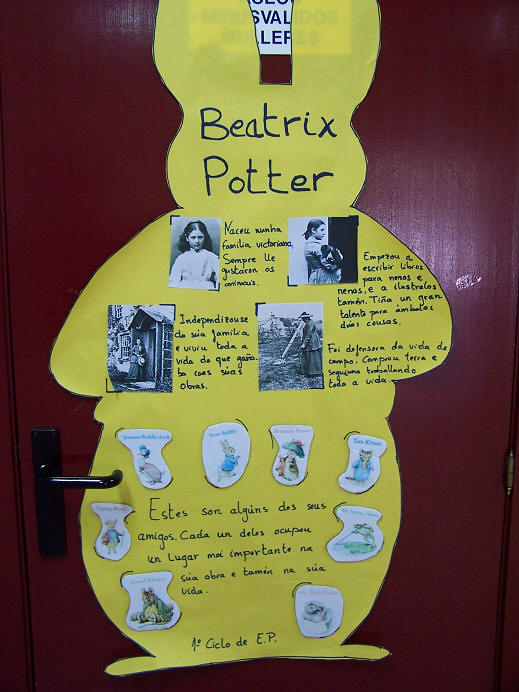 ASEOS
MINUSVALIDOS
MULLERES
Beatrix
Potter
Naceu nunha
familia victoriana.
Sempre lle
gustaron os
animais.
Empezou a
escribir libros
para nenos e
nenas, e a ilustralos
tamén. Tiña un gran
talento para ámbalas
dúas cousas.
Independizouse
da súa familia
e viviu toda a
vida do que gaña-
ba coas súas
obras.
Foi defensora da vida do
campo. Comprou terra e
seguiuna traballando
toda a vida.
Jemima Puddle-duck
Peter Rabbit
Benjamin Bunny
Tom Kitten
Pigling Bland
Mr. Jeremy Fisher
Samuel Whiskers
Mrs. Tiggy-Winkle
Estes son algúns dos seus
amigos. Cada un deles ocupou
un lugar moi importante na
súa obra e tamén na súa
vida.
1º Ciclo de E.P.